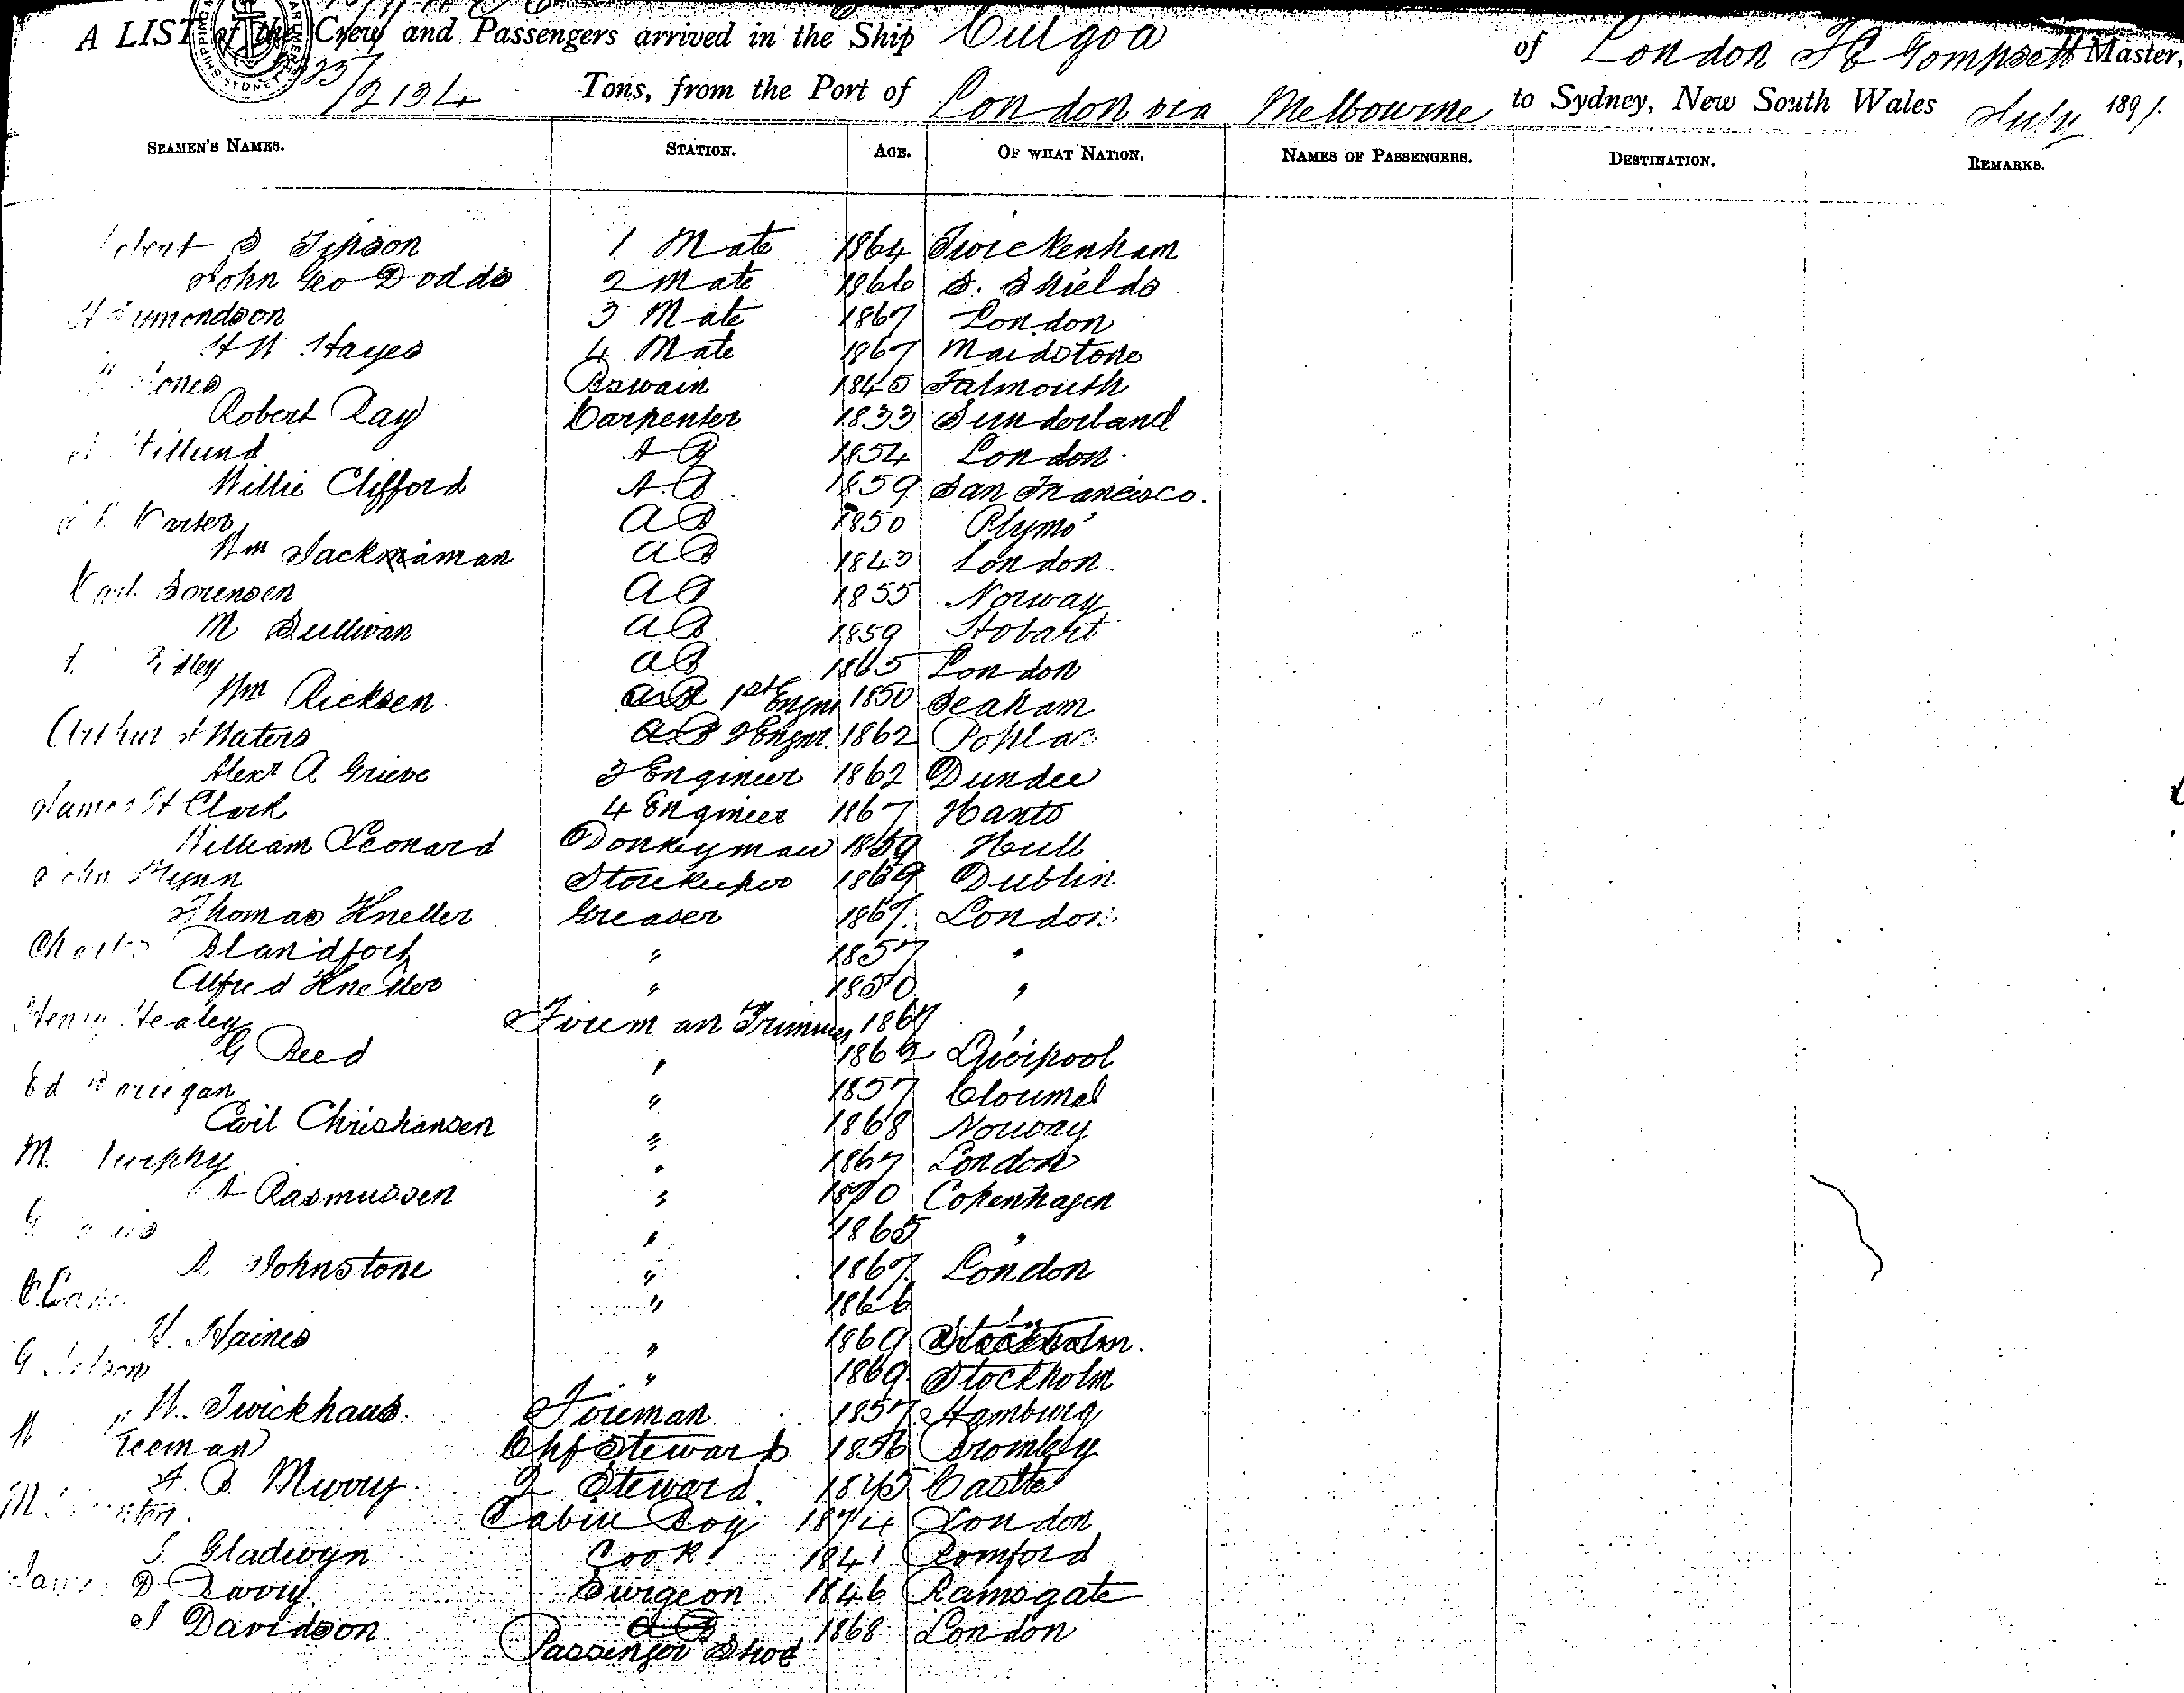 A LIST of the Crew and Passengers arrived in the Ship Culgoa of London Master,
2134 Tons, from the Port of London via Melbourne to Sydney, New South Wales July 1891.
SEAMEN'S NAMES. STATION. AGE. OF WHAT NATION. NAMES OF PASSENGERS. DESTINATION. REMARKS.
S Tipson 1 Mate 1864 Twickenham
John Geo Dodds 2 Mate 1866 S. Shields
3 Mate 1867 London
H W Hayes 4 Mate 1867 Maidstone
Jones Bswain 1845 Falmouth
Robert Ray Carpenter 1833 Sunderland
A B 1854 London
Willie Clifford A.B. 1859 San Francisco.
AB 1850 Plymo'
Wm Jackaman AB 1843 London
Sorensen AB 1855 Norway
M Sullivan AB 1859 Hobart
AB 1865 London
Wm Ricksen 1st Engnr 1850 Seaham
Arthur H Waters 2 Engnr. 1862
Alexr A Grieve 3 Engineer 1862 Dundee
James H Clark 4 Engineer 1867 Hants
William Leonard Donkeyman 1859 Hull
John Flynn Storekeeper 1869 Dublin
Thomas Kneller Greaser 1867 London
Charles Blandford " 1857 "
Alfred Kneller " 1850 "
Henry Healey Fireman Trimmer 1867 "
G Reed " 1862 Liverpool
Ed " 1857 Clonmel
Carl Christiansen " 1868 Norway
M. Murphy " 1867 London
A Rasmussen " 1870 Copenhagen
G. " 1865 "
A Johnstone " 1867 London
" 1866 "
H. Haines " 1869
G " 1869 Stockholm
W. Twickhaus Fireman 1857 Hamburg
Chf Steward 1856 Bromley
2 Steward 1845 Castle
M Cabin Boy 1874 London
S. Gladwyn Cook 1841 Romford
D Davy Surgeon 1846 Ramsgate
J Davidson AB 1868 London
Passenger Stwd